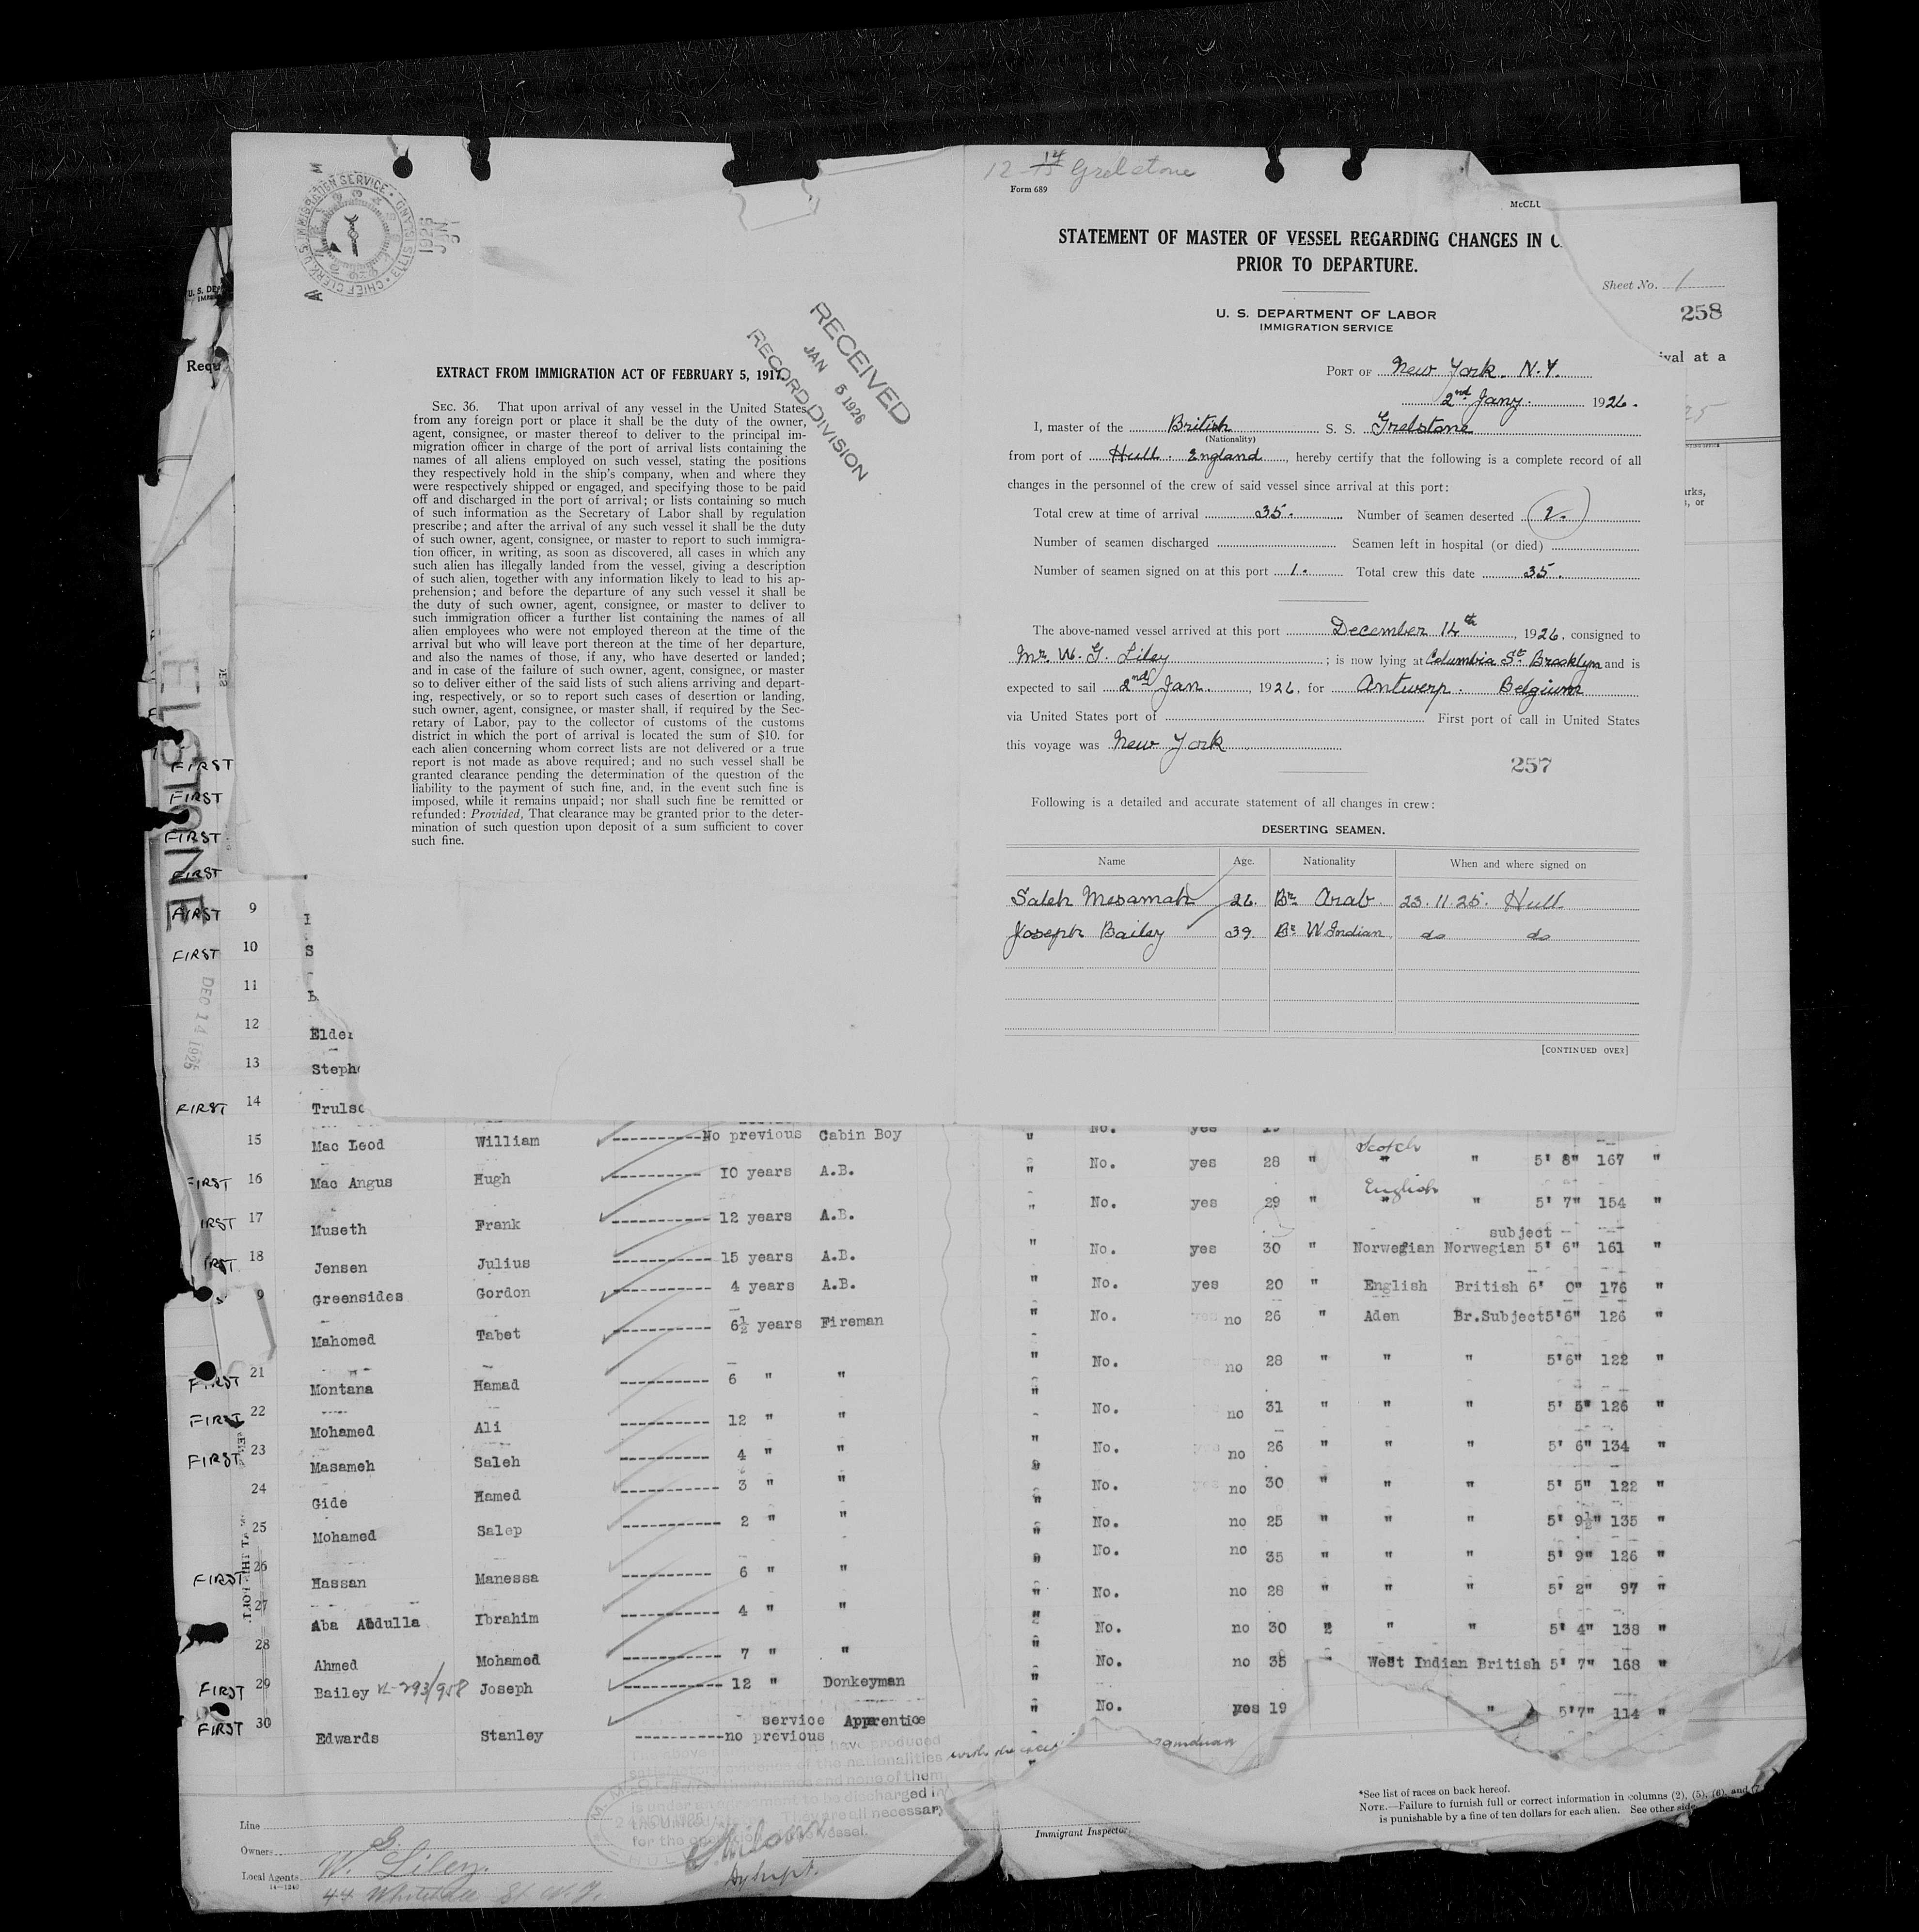 12 14 Grelstone
Form 689
McCLU
STATEMENT OF MASTER OF VESSEL REGARDING CHANGES IN C
PRIOR TO DEPARTURE.
U. S. DEPARTMENT OF LABOR
IMMIGRATION SERVICE
Sheet No. 1
258
PORT OF New York. N.Y.
2nd Jany. 1926.
I, master of the British S. S. Grelstone
(Nationality)
from port of Hull. England, hereby certify that the following is a complete record of all
changes in the personnel of the crew of said vessel since arrival at this port:
Total crew at time of arrival 35. Number of seamen deserted 2.
Number of seamen discharged Seamen left in hospital (or died)
Number of seamen signed on at this port 1. Total crew this date 35.
The above-named vessel arrived at this port December 14th, 1926, consigned to
Mr. W. G. Liley; is now lying at Columbia St. Brooklyn and is
expected to sail 2nd Jan., 1926, for Antwerp. Belgium
via United States port of First port of call in United States
this voyage was New York
257
Following is a detailed and accurate statement of all changes in crew:
DESERTING SEAMEN.
Name Age. Nationality When and where signed on
Saleh Mesamah 26. Br. Arab. 23.11.25. Hull
Joseph Bailey 39. Br. W. Indian do do
[CONTINUED OVER]
CHIEF CLERK U.S. IMMIGRATION SERVICE ELLIS ISLAND
1926
JAN
RECEIVED
JAN 5 1926
RECORD DIVISION
EXTRACT FROM IMMIGRATION ACT OF FEBRUARY 5, 1917.
SEC. 36. That upon arrival of any vessel in the United States
from any foreign port or place it shall be the duty of the owner,
agent, consignee, or master thereof to deliver to the principal im-
migration officer in charge of the port of arrival lists containing the
names of all aliens employed on such vessel, stating the positions
they respectively hold in the ship's company, when and where they
were respectively shipped or engaged, and specifying those to be paid
off and discharged in the port of arrival; or lists containing so much
of such information as the Secretary of Labor shall by regulation
prescribe; and after the arrival of any such vessel it shall be the duty
of such owner, agent, consignee, or master to report to such immigra-
tion officer, in writing, as soon as discovered, all cases in which any
such alien has illegally landed from the vessel, giving a description
of such alien, together with any information likely to lead to his ap-
prehension; and before the departure of any such vessel it shall be
the duty of such owner, agent, consignee, or master to deliver to
such immigration officer a further list containing the names of all
alien employees who were not employed thereon at the time of the
arrival but who will leave port thereon at the time of her departure,
and also the names of those, if any, who have deserted or landed;
and in case of the failure of such owner, agent, consignee, or master
so to deliver either of the said lists of such aliens arriving and depart-
ing, respectively, or so to report such cases of desertion or landing,
such owner, agent, consignee, or master shall, if required by the Sec-
retary of Labor, pay to the collector of customs of the customs
district in which the port of arrival is located the sum of $10. for
each alien concerning whom correct lists are not delivered or a true
report is not made as above required; and no such vessel shall be
granted clearance pending the determination of the question of the
liability to the payment of such fine, and, in the event such fine is
imposed, while it remains unpaid; nor shall such fine be remitted or
refunded: Provided, That clearance may be granted prior to the deter-
mination of such question upon deposit of a sum sufficient to cover
such fine.
U. S. DEP
Requ
ival at a
FIRST
FIRST
FIRST
FIRST
FIRST 9
FIRST 10 S
11
12 Elder
13 Steph
FIRST 14 Trulso
DEC 14 1925
15 Mac Leod William No previous Cabin Boy " No. yes 19
FIRST 16 Mac Angus Hugh 10 years A.B. " No. yes 28 " Scotch " " 5' 8" 167 "
IRST 17 Museth Frank 12 years A.B. " No. yes 29 " English " " 5' 7" 154 "
subject
18 Jensen Julius 15 years A.B. " No. yes 30 " Norwegian Norwegian 5' 6" 161 "
9 Greensides Gordon 4 years A.B. " No. yes 20 " English British 6' 0" 176 "
Mahomed Tabet 6½ years Fireman " No. no 26 " Aden Br.Subject 5'6" 126 "
FIRST 21 Montana Hamad 6 " " " No. no 28 " " " 5'6" 122 "
FIRST 22 Mohamed Ali 12 " " No. no 31 " " " 5' 5" 126 "
FIRST 23 Masameh Saleh 4 " " " No. no 26 " " " 5' 6" 134 "
24 Gide Hamed 3 " " " No. no 30 " " " 5' 5" 122 "
25 Mohamed Salep 2 " " " No. no 25 " " " 5' 9½" 135 "
FIRST 26 Hassan Manessa 6 " " " No. no 35 " " " 5' 9" 126 "
27 Aba Abdulla Ibrahim 4 " " " No. no 28 " " " 5' 2" 97 "
28 Ahmed Mohamed 7 " " " No. no 30 " " " 5' 4" 138 "
FIRST 29 Bailey Joseph 12 " Donkeyman " No. no 35 " West Indian British 5' 7" 168 "
FIRST 30 Edwards Stanley no previous service Apprentice " No. yes 19 " 5'7" 114 "
have produced
satisfactory evidence of the nationalities
names and none of them
is under an agreement to be discharged in
They are all necessary
for the vessel.
Line
Owners
Local Agents W. G. Liley.
14—1240
44 Whitehall St N.Y.
Immigrant Inspector
*See list of races on back hereof.
NOTE.—Failure to furnish full or correct information in columns (2), (5), (6), and (7
is punishable by a fine of ten dollars for each alien. See other side